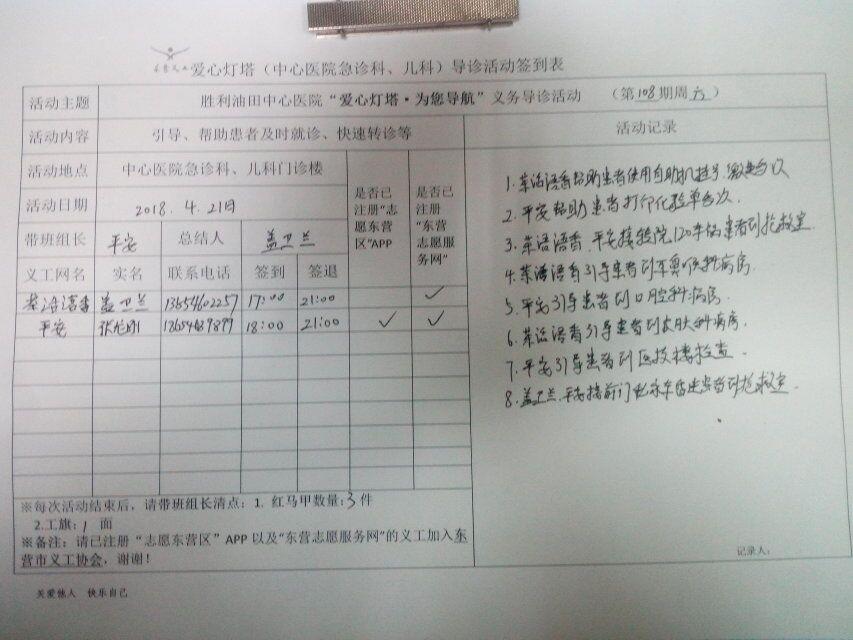 爱心灯塔（中心医院急诊科、儿科）导诊活动签到表
活动主题 胜利油田中心医院“爱心灯塔·为您导航”义务导诊活动 （第108期周六）
活动内容 引导、帮助患者及时就诊、快速转诊等 活动记录
活动地点 中心医院急诊科、儿科门诊楼
活动日期 2018.4.21日
是否已注册“志愿东营区”APP
是否已注册“东营志愿服务网”
带班组长 平安 总结人 盖卫兰
义工网名 实名 联系电话 签到 签退
茶语语香 盖卫兰 13654602257 17:00 21:00 ✓
平安 18:00 21:00 ✓ ✓
1.茶语语香帮助患者使用自助机挂号、缴费
2.平安帮助患者打印化验单
3.茶语语香、平安接院120车俩患者到抢救室.
4.茶语语香引导患者到耳鼻喉科病房.
5.平安引导患者到口腔科病房.
6.茶语语香引导患者到皮肤科病房.
7.平安引导患者到医技楼检查.
8.盖卫兰、平安接前门患者到抢救室.
※每次活动结束后，请带班组长清点：1. 红马甲数量:3件
2.工旗:1 面
※备注：请已注册“志愿东营区”APP以及“东营志愿服务网”的义工加入东
营市义工协会，谢谢！
记录人:
关爱他人 快乐自己